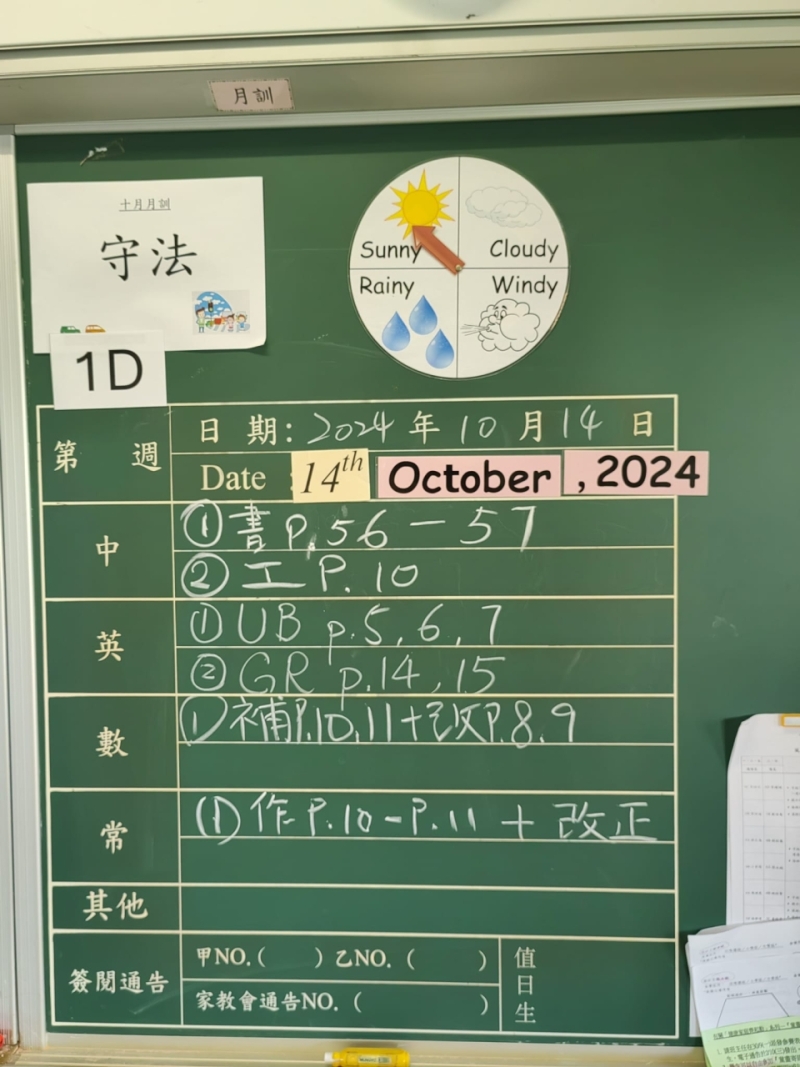 月訓
十月月訓
守法
1D
Sunny
Cloudy
Rainy
Windy
第 週
日 期: 2024 年 10 月 14 日
Date 14th October , 2024
中
① 書 P. 56 - 57
② 工 P. 10
英
① UB p.5, 6, 7
② GR p.14, 15
數
① 補P.10, 11+改P.8, 9
常
(1) 作 P.10 - P.11 + 改正
其他
簽閱通告
甲NO.( ) 乙NO. ( )
家教會通告NO. ( )
值日生